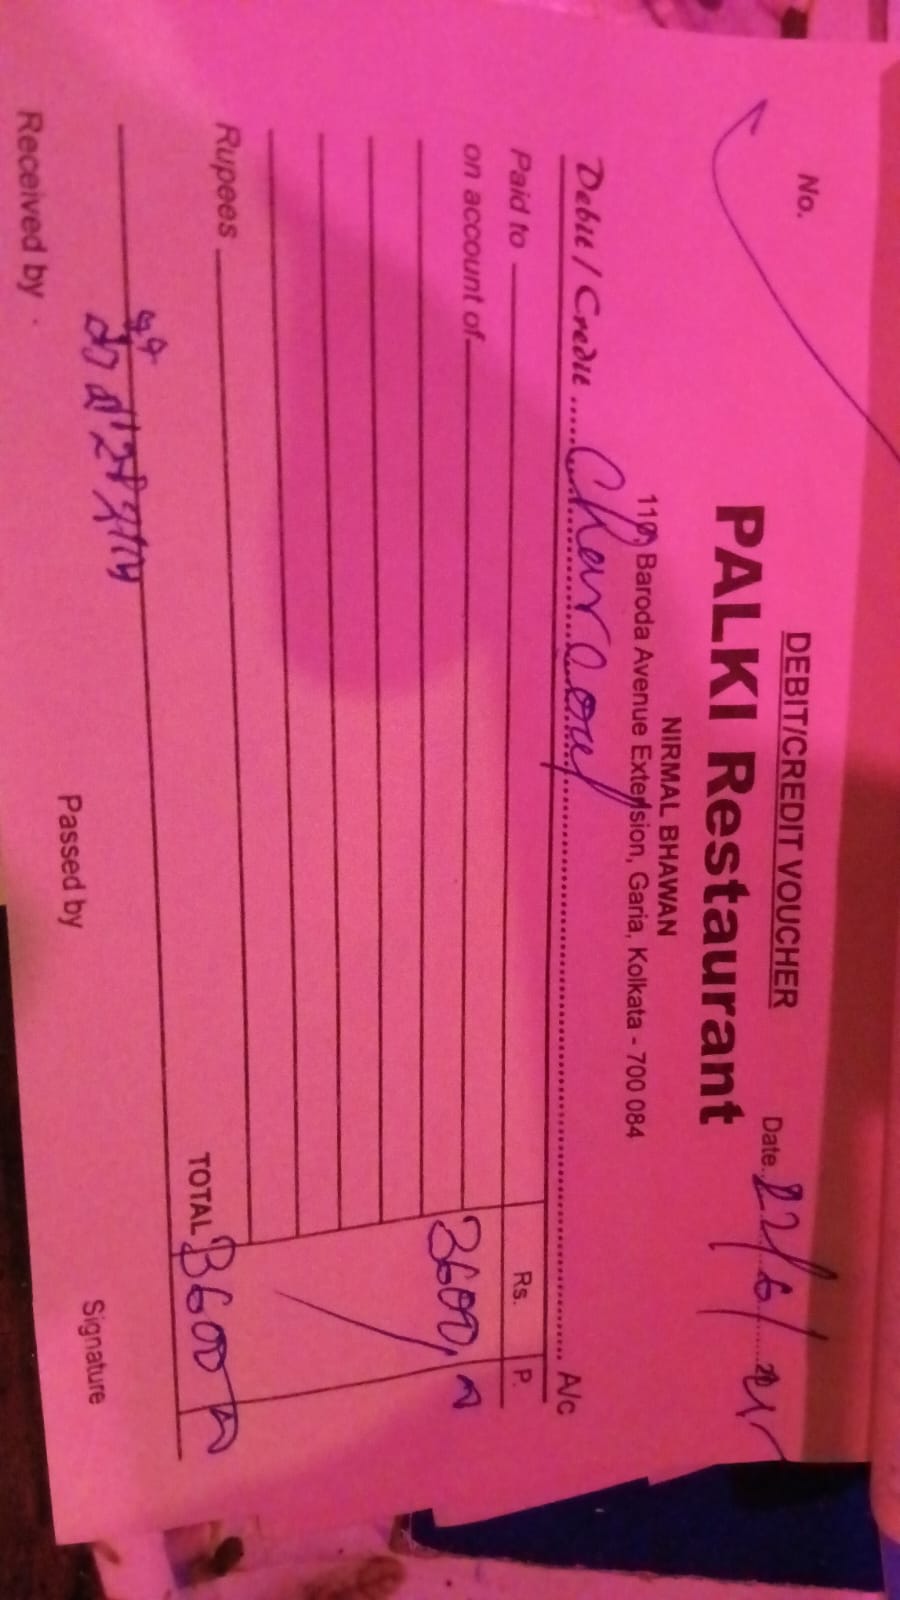 DEBIT/CREDIT VOUCHER
No.
Date 22/6/
PALKI Restaurant
NIRMAL BHAWAN
119, Baroda Avenue Extension, Garia, Kolkata - 700 084
Debit / Credit Charcoal A/c
Paid to Rs. P.
on account of
3600/-
Rupees
TOTAL 3600
Received by Passed by Signature